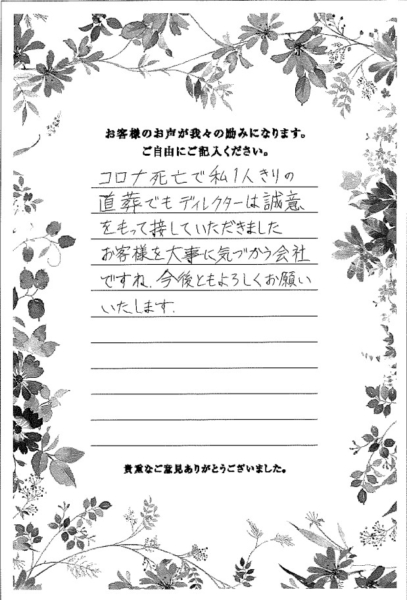 お客様のお声が我々の励みになります。
ご自由にご記入ください。
コロナ死亡で私1人きりの
直葬でもディレクターは誠意
をもって接していただきました
お客様を大事に気づかう会社
ですね.今後ともよろしくお願い
いたします.
貴重なご意見ありがとうございました。